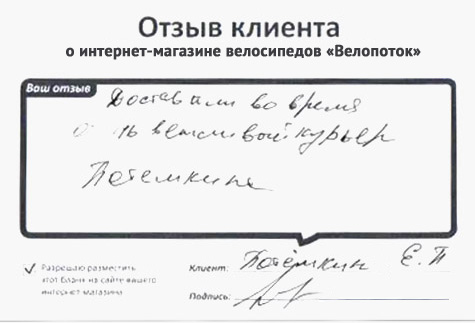 Отзыв клиента
о интернет-магазине велосипедов «Велопоток»
Ваш отзыв
Доставили во время
вежливый курьер
Потемкина
Клиент: Потёмкин Е.П
Разрешаю разместить
этот бланк на сайте вашего
интернет магазина
Подпись: